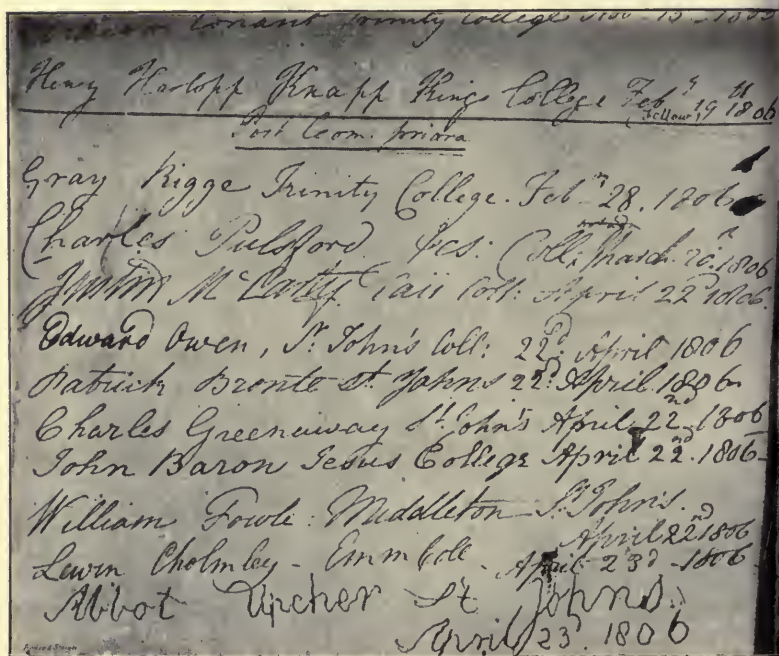 Conant Trinity College
Henry Hartopp Knapp Kings College Feby 19th 1806
(Fellow)
Post Com. priora
Gray Rigge Trinity College. Feb. 28. 1806
Charles Pulsford Coll: March 1806
McCarthy Caii Coll: April 22d 1806.
Edward Owen, St. John's Coll: 22d April 1806
Patrick Bronte St. Johns 22d April 1806
Charles Greenaway St. John's April 22nd 1806
John Baron Jesus College April 22nd 1806
William Fowle Middleton St. John's.
April 22nd 1806
Lewin Cholmley - Emm Coll. April 23d - 1806
Abbot Upcher St. Johns.
April 23d. 1806